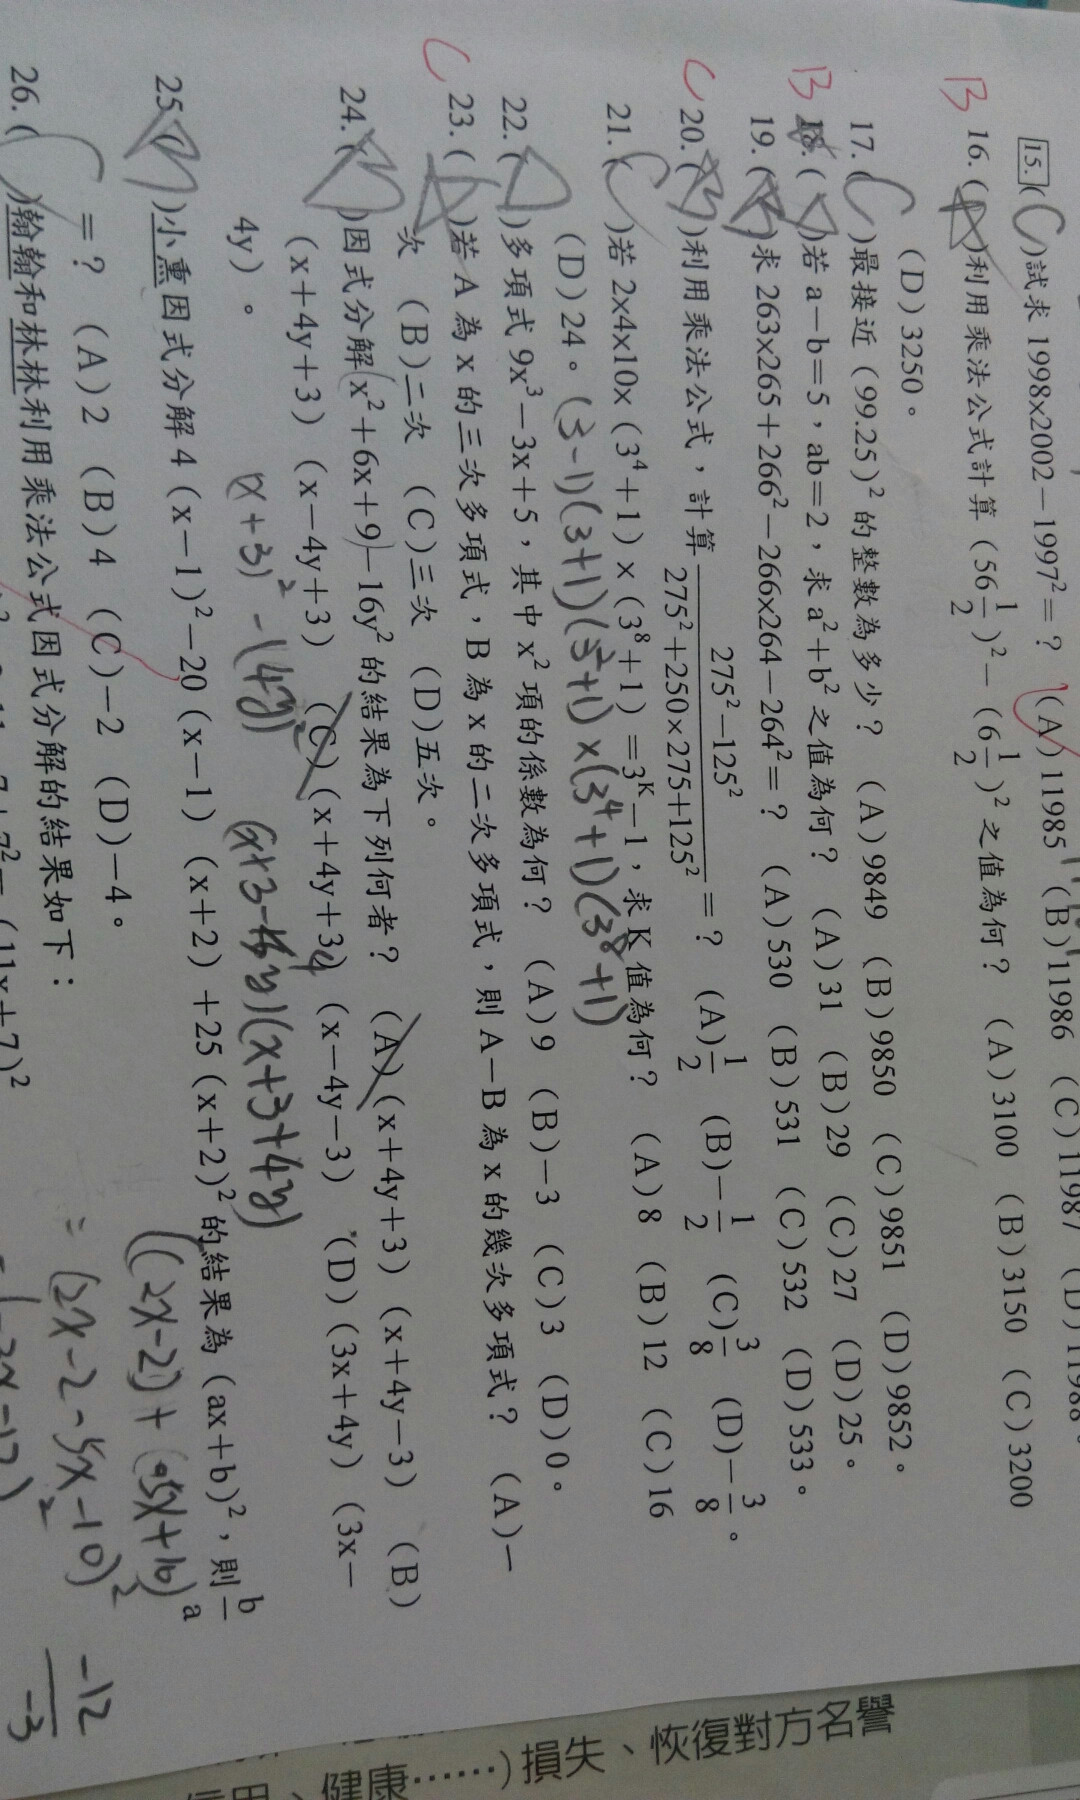 15.(C)試求 1998x2002－1997²＝？ (A)11985 (B)11986 (C)11987 (D)11988。
B 16.( )利用乘法公式計算(56 1/2)²－(6 1/2)²之值為何？ (A)3100 (B)3150 (C)3200
(D)3250。
17.(C)最接近(99.25)²的整數為多少？ (A)9849 (B)9850 (C)9851 (D)9852。
B 18.( )若a－b＝5，ab＝2，求a²＋b²之值為何？ (A)31 (B)29 (C)27 (D)25。
19.(B)求 263x265＋266²－266x264－264²＝？ (A)530 (B)531 (C)532 (D)533。
C 20.(B)利用乘法公式，計算 275²－125² / 275²＋250×275＋125² ＝？ (A)1/2 (B)－1/2 (C)3/8 (D)－3/8。
21.(C)若 2x4x10x(3⁴＋1)×(3⁸＋1)＝3ᴷ－1，求K值為何？ (A)8 (B)12 (C)16
(D)24。 (3-1)(3+1)(3²+1)×(3⁴+1)(3⁸+1)
22.(D)多項式 9x³－3x＋5，其中x²項的係數為何？ (A)9 (B)－3 (C)3 (D)0。
C 23.( )若 A 為 x 的三次多項式，B 為 x 的二次多項式，則 A－B 為 x 的幾次多項式？ (A)一
次 (B)二次 (C)三次 (D)五次。
24.(B)因式分解 x²＋6x＋9－16y² 的結果為下列何者？ (A)(x＋4y＋3)(x＋4y－3) (B)
(x＋4y＋3)(x－4y＋3) (C)(x＋4y＋3)(x－4y－3) (D)(3x＋4y)(3x－
4y)。
(x+3)²-(4y)² (x+3-4y)(x+3+4y)
25.(B)小熏因式分解 4(x－1)²－20(x－1)(x＋2)＋25(x＋2)²的結果為(ax＋b)²，則 b/a
＝？ (A)2 (B)4 (C)－2 (D)－4。
((2x-2)+(5x+10)
=(2x-2-5x-10)²
-12
-3
26.(C)翰翰和林林利用乘法公式因式分解的結果如下：
(11x＋7)²
損失、恢復對方名譽
健康……)